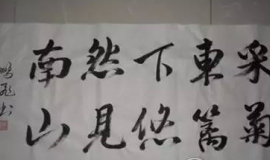 采菊
東篱
下悠
然見
南山